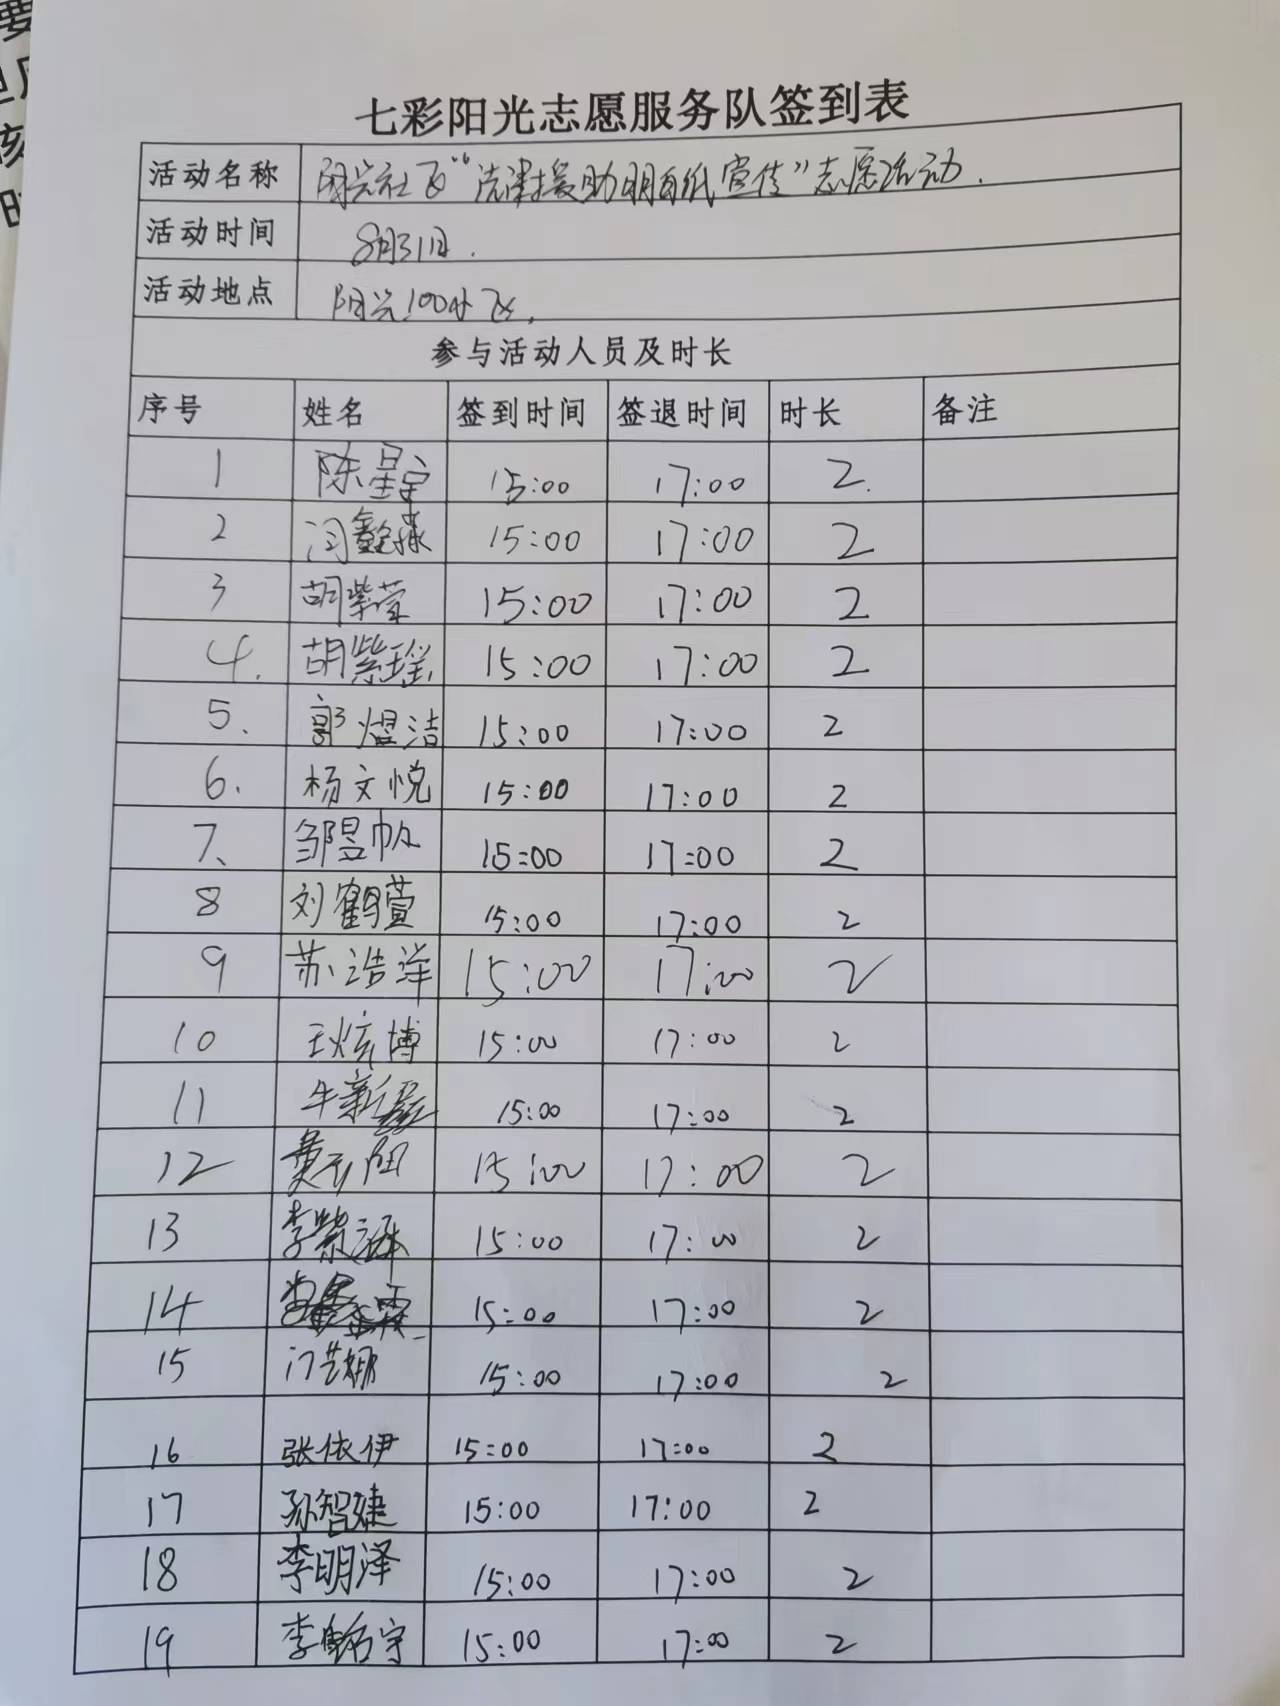 七彩阳光志愿服务队签到表
活动名称 阳光社区“法律援助明白纸宣传”志愿活动.
活动时间 8月31日.
活动地点 阳光100小区.
参与活动人员及时长
序号 姓名 签到时间 签退时间 时长 备注
1 陈星宇 15:00 17:00 2.
2 闫 15:00 17:00 2
3 胡紫莹 15:00 17:00 2
4. 胡紫瑶 15:00 17:00 2
5. 郭煜洁 15:00 17:00 2
6. 杨文悦 15:00 17:00 2
7、 邹昱帆 15:00 17:00 2
8 刘鹤萱 15:00 17:00 2
9 苏浩洋 15:00 17:00 2
10 博 15:00 17:00 2
11 牛新 15:00 17:00 2
12 黄 阳 15:00 17:00 2
13 李紫涵 15:00 17:00 2
14 15:00 17:00 2
15 门艺娜 15:00 17:00 2
16 张依伊 15:00 17:00 2
17 孙智婕 15:00 17:00 2
18 李明泽 15:00 17:00 2
19 李 宇 15:00 17:00 2